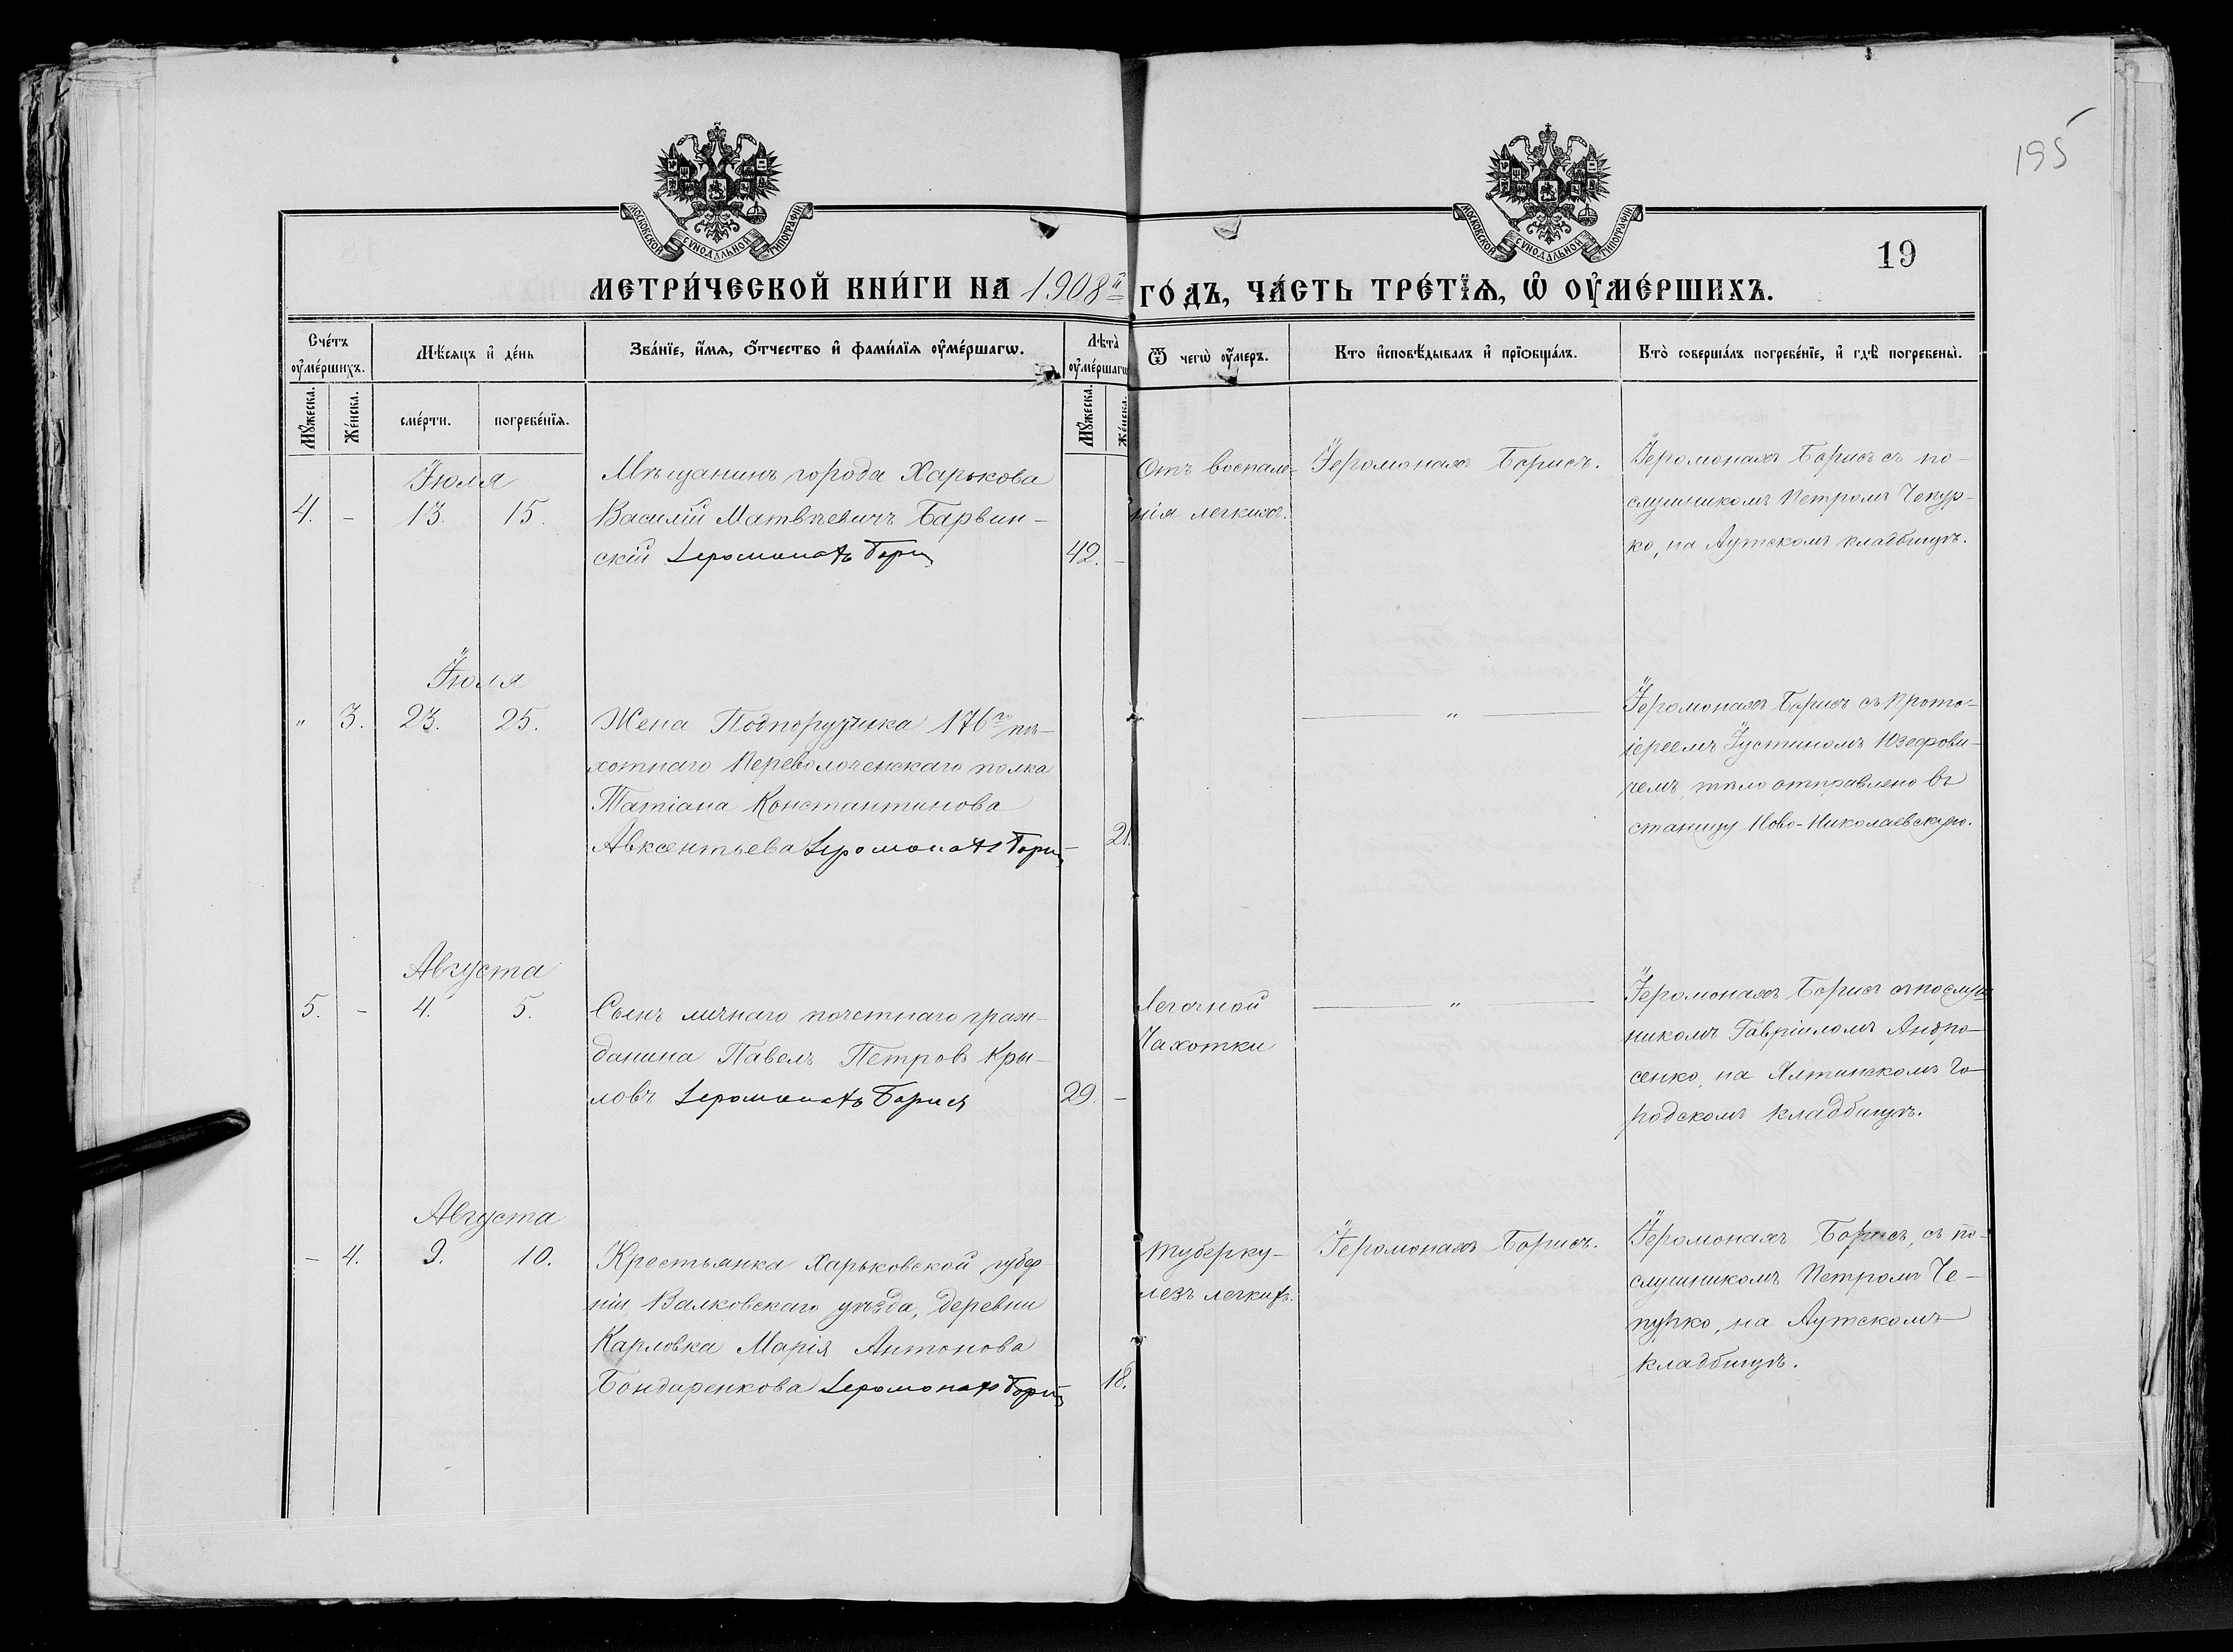 195
МОСКОВСКОЙ СѴНОДАЛЬНОЙ ТИПОГРАФІИ.
МОСКОВСКОЙ СѴНОДАЛЬНОЙ ТИПОГРАФІИ.
19
МЕТРИ́ЧЕСКОЙ КНИ́ГИ НА 1908й ГО́ДЪ, ЧА́СТЬ ТРЕ́ТЇѦ, Ѡ҆ ОУ҆МЕ́РШИХЪ.
Сче́тъ оу҆ме́ршихъ.
Мѣ́сѧцъ и҆ де́нь
Зва́нїе, и҆́мѧ, ѻ҆́тчество и҆ фами́лїѧ оу҆ме́ршагѡ.
Лѣ́та̀ оу҆ме́ршагѡ
Ѿ чегѡ̀ оу҆́меръ.
Кто̀ и҆сповѣ́дывалъ и҆ прїѻбща́лъ.
Кто̀ соверша́лъ погребе́нїе, и҆ гдѣ̀ погребены̀.
Мꙋ́жеска.
Же́нска.
сме́рти.
погребе́нїѧ.
Мꙋ́жеска.
Же́нска.
Іюля
4. - 13. 15.
Мѣщанинъ города Харькова
Василій Матвѣевичъ Барвин-
скій Іеромонахъ Борис
42. -
Отъ воспале-
нія легкихъ.
Іеромонахъ Борисъ.
Іеромонахъ Борисъ съ по-
слушникомъ Петромъ Чепур-
ко, на Аутскомъ кладбищѣ.
Іюля
" 3. 23. 25.
Жена Подпоручика 176го пѣ-
хотнаго Переволоченскаго полка
Татіана Константинова
Авксентьева Іеромонахъ Борис
- 21.
"
Іеромонахъ Борисъ съ Прото-
іереемъ Іустиномъ Юзефови-
чемъ, тѣло отправлено въ
станицу Ново-Николаевскую.
Августа
5. - 4. 5.
Сынъ личнаго почетнаго граж-
данина Павелъ Петровъ Кры-
ловъ Іеромонахъ Борисъ
29. -
Легочной
Чахотки
"
Іеромонахъ Борисъ съ послуш
никомъ Гавріиломъ Андро-
сенко, на Ялтинскомъ Го-
родскомъ кладбищѣ.
Августа
- 4. 9. 10.
Крестьянка Харьковской губер-
ніи Валковскаго уѣзда, деревни
Карловка Марія Антонова
Бондаренкова Іеромонахъ Борис
18.
Туберку-
лезъ легкихъ.
Іеромонахъ Борисъ.
Іеромонахъ Борисъ, съ по-
слушникомъ Петромъ Че-
пурко, на Аутскомъ
кладбищѣ.